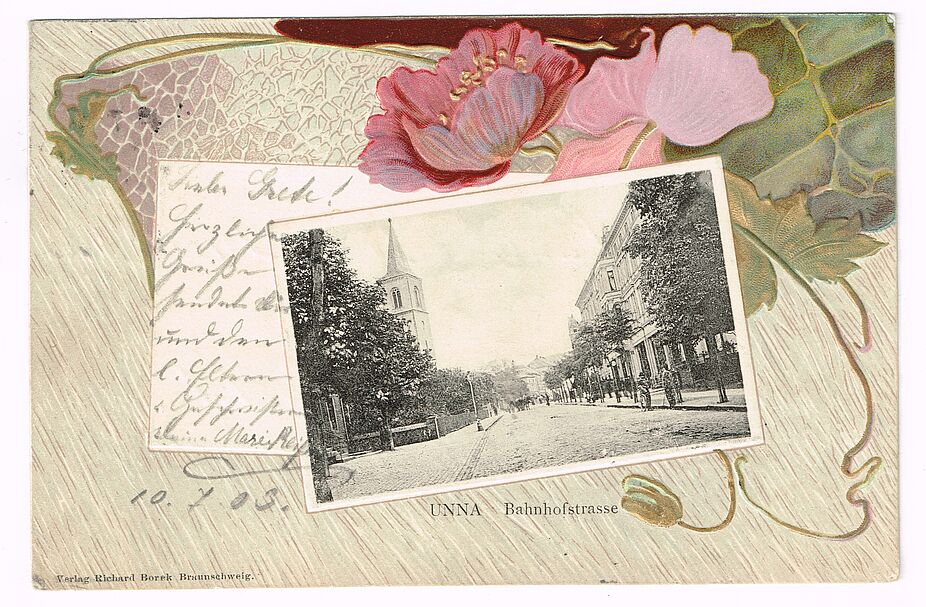 Liebe Grete!
Herzliche
Grüße
sendet dir
und den
l. Eltern
u. Geschwistern
Deine Marie
10. 7. 03.
UNNA Bahnhofstrasse
Verlag Richard Borek Braunschweig.